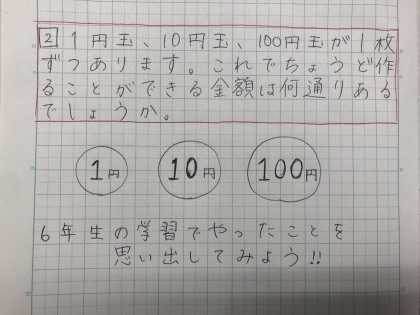 2 1円玉、10円玉、100円玉が1枚
ずつあります。これでちょうど作
ることができる金額は何通りある
でしょうか。
1円 10円 100円
6年生の学習でやったことを
思い出してみよう!!